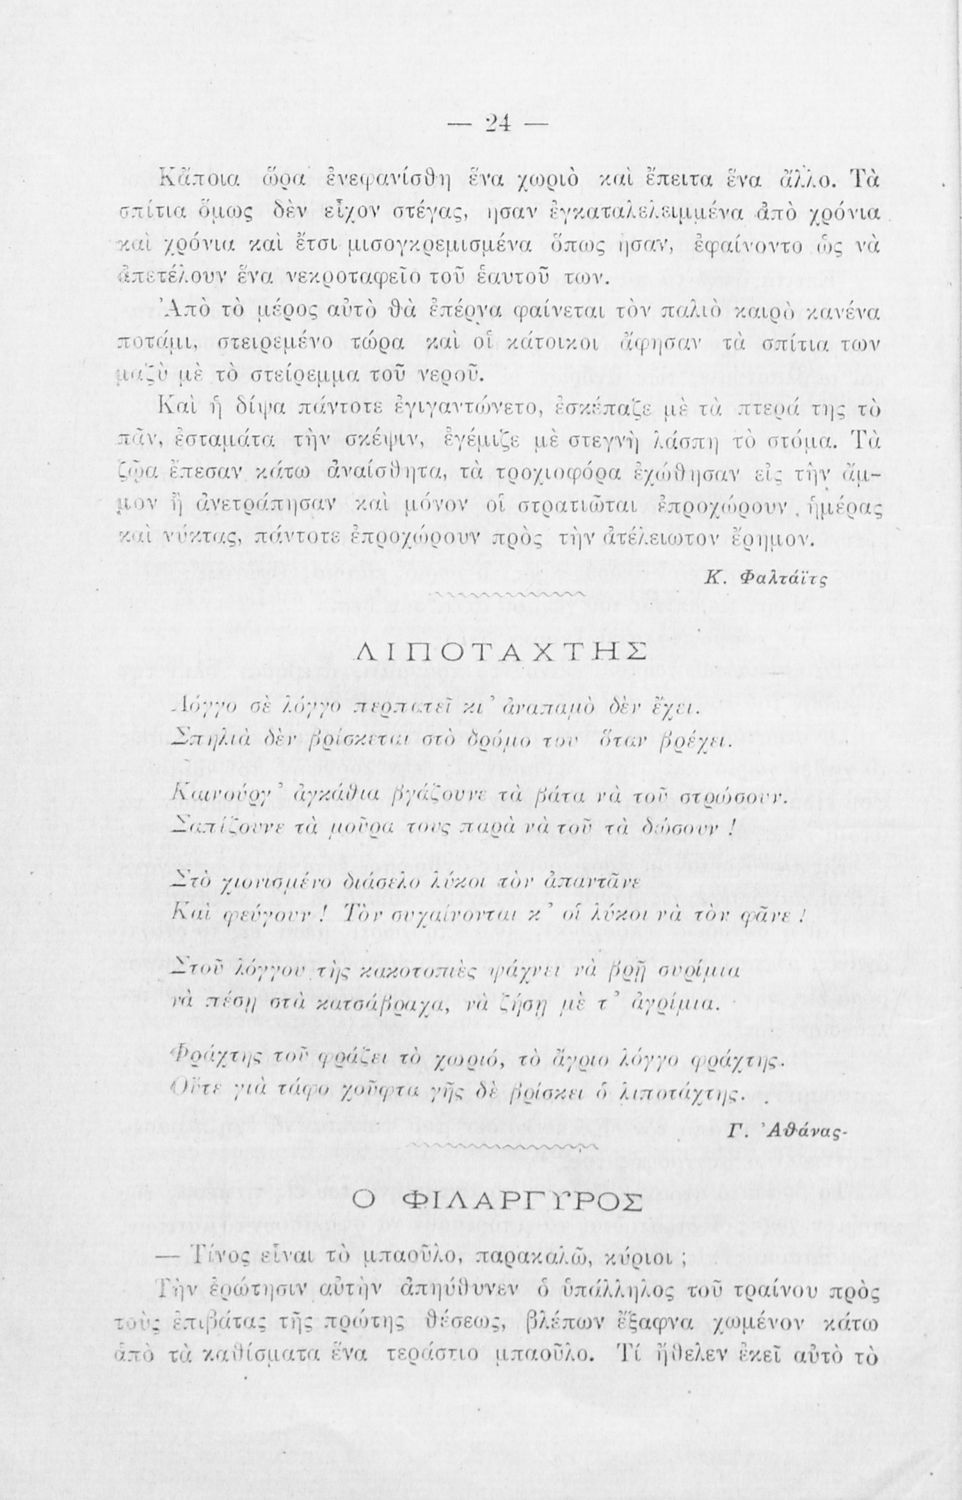 — 24 —
Κἄποια ὥρα ἐνεφανίσθη ἕνα χωριὸ καὶ ἔπειτα ἕνα ἄλλο. Τὰ
σπίτια ὅμως δὲν εἶχον στέγας, ησαν ἐγκαταλελειμμένα ἀπὸ χρόνια
καὶ χρόνια καὶ ἔτσι μισογκρεμισμένα ὅπως ησαν, ἐφαίνοντο ὡς νὰ
ἀπετέλουν ἕνα νεκροταφεῖο τοῦ ἑαυτοῦ των.
Ἀπὸ τὸ μέρος αὐτὸ θὰ ἐπέρνα φαίνεται τὸν παλιὸ καιρὸ κανένα
ποτάμι, στειρεμένο τώρα καὶ οἱ κάτοικοι ἄφησαν τὰ σπίτια των
μαζὺ μὲ τὸ στείρεμμα τοῦ νεροῦ.
Καὶ ἡ δίψα πάντοτε ἐγιγαντώνετο, ἐσκέπαζε μὲ τὰ πτερά της τὸ
πᾶν, ἐσταμάτα τὴν σκέψιν, ἐγέμιζε μὲ στεγνὴ λάσπη τὸ στόμα. Τὰ
ζῷα ἔπεσαν κάτω ἀναίσθητα, τὰ τροχιοφόρα ἐχώθησαν εἰς τὴν ἄμ-
μον ἢ ἀνετράπησαν καὶ μόνον οἱ στρατιῶται ἐπροχώρουν, ἡμέρας
καὶ νύκτας, πάντοτε ἐπροχώρουν πρὸς τὴν ἀτέλειωτον ἔρημον.
Κ. Φαλτάϊτς
ΛΙΠΟΤΑΧΤΗΣ
Λόγγο σὲ λόγγο περπατεῖ κι᾽ ἀναπαμὸ δὲν ἔχει.
Σπηλιὰ δὲν βρίσκεται στὸ δρόμο του ὅταν βρέχει.
Καινούργ᾽ ἀγκάθια βγάζουνε τὰ βάτα νὰ τοῦ στρώσουν.
Σαπίζουνε τὰ μοῦρα τους παρὰ νὰ τοῦ τὰ δώσουν !
Στὸ χιονισμένο διάσελο λύκοι τὸν ἀπαντᾶνε
Καὶ φεύγουν ! Τὸν συχαίνονται κ᾽ οἱ λύκοι νὰ τὸν φᾶνε !
Στοῦ λόγγου τῆς κακοτοπιὲς ψάχνει νὰ βρῇ συρίμια
νὰ πέσῃ στὰ κατσάβραχα, νὰ ζήσῃ μὲ τ᾽ ἀγρίμια.
Φράχτης τοῦ φράζει τὸ χωριό, τὸ ἄγριο λόγγο φράχτης.
Οὔτε γιὰ τάφο χοῦφτα γῆς δὲ βρίσκει ὁ λιποτάχτης.
Γ. Ἀθάνας
Ο ΦΙΛΑΡΓΥΡΟΣ
— Τίνος εἶναι τὸ μπαοῦλο, παρακαλῶ, κύριοι ;
Τὴν ἐρώτησιν αὐτὴν ἀπηύθυνεν ὁ ὑπάλληλος τοῦ τραίνου πρὸς
τοὺς ἐπιβάτας τῆς πρώτης θέσεως, βλέπων ἔξαφνα χωμένον κάτω
ἀπὸ τὰ καθίσματα ἕνα τεράστιο μπαοῦλο. Τί ἤθελεν ἐκεῖ αὐτὸ τὸ